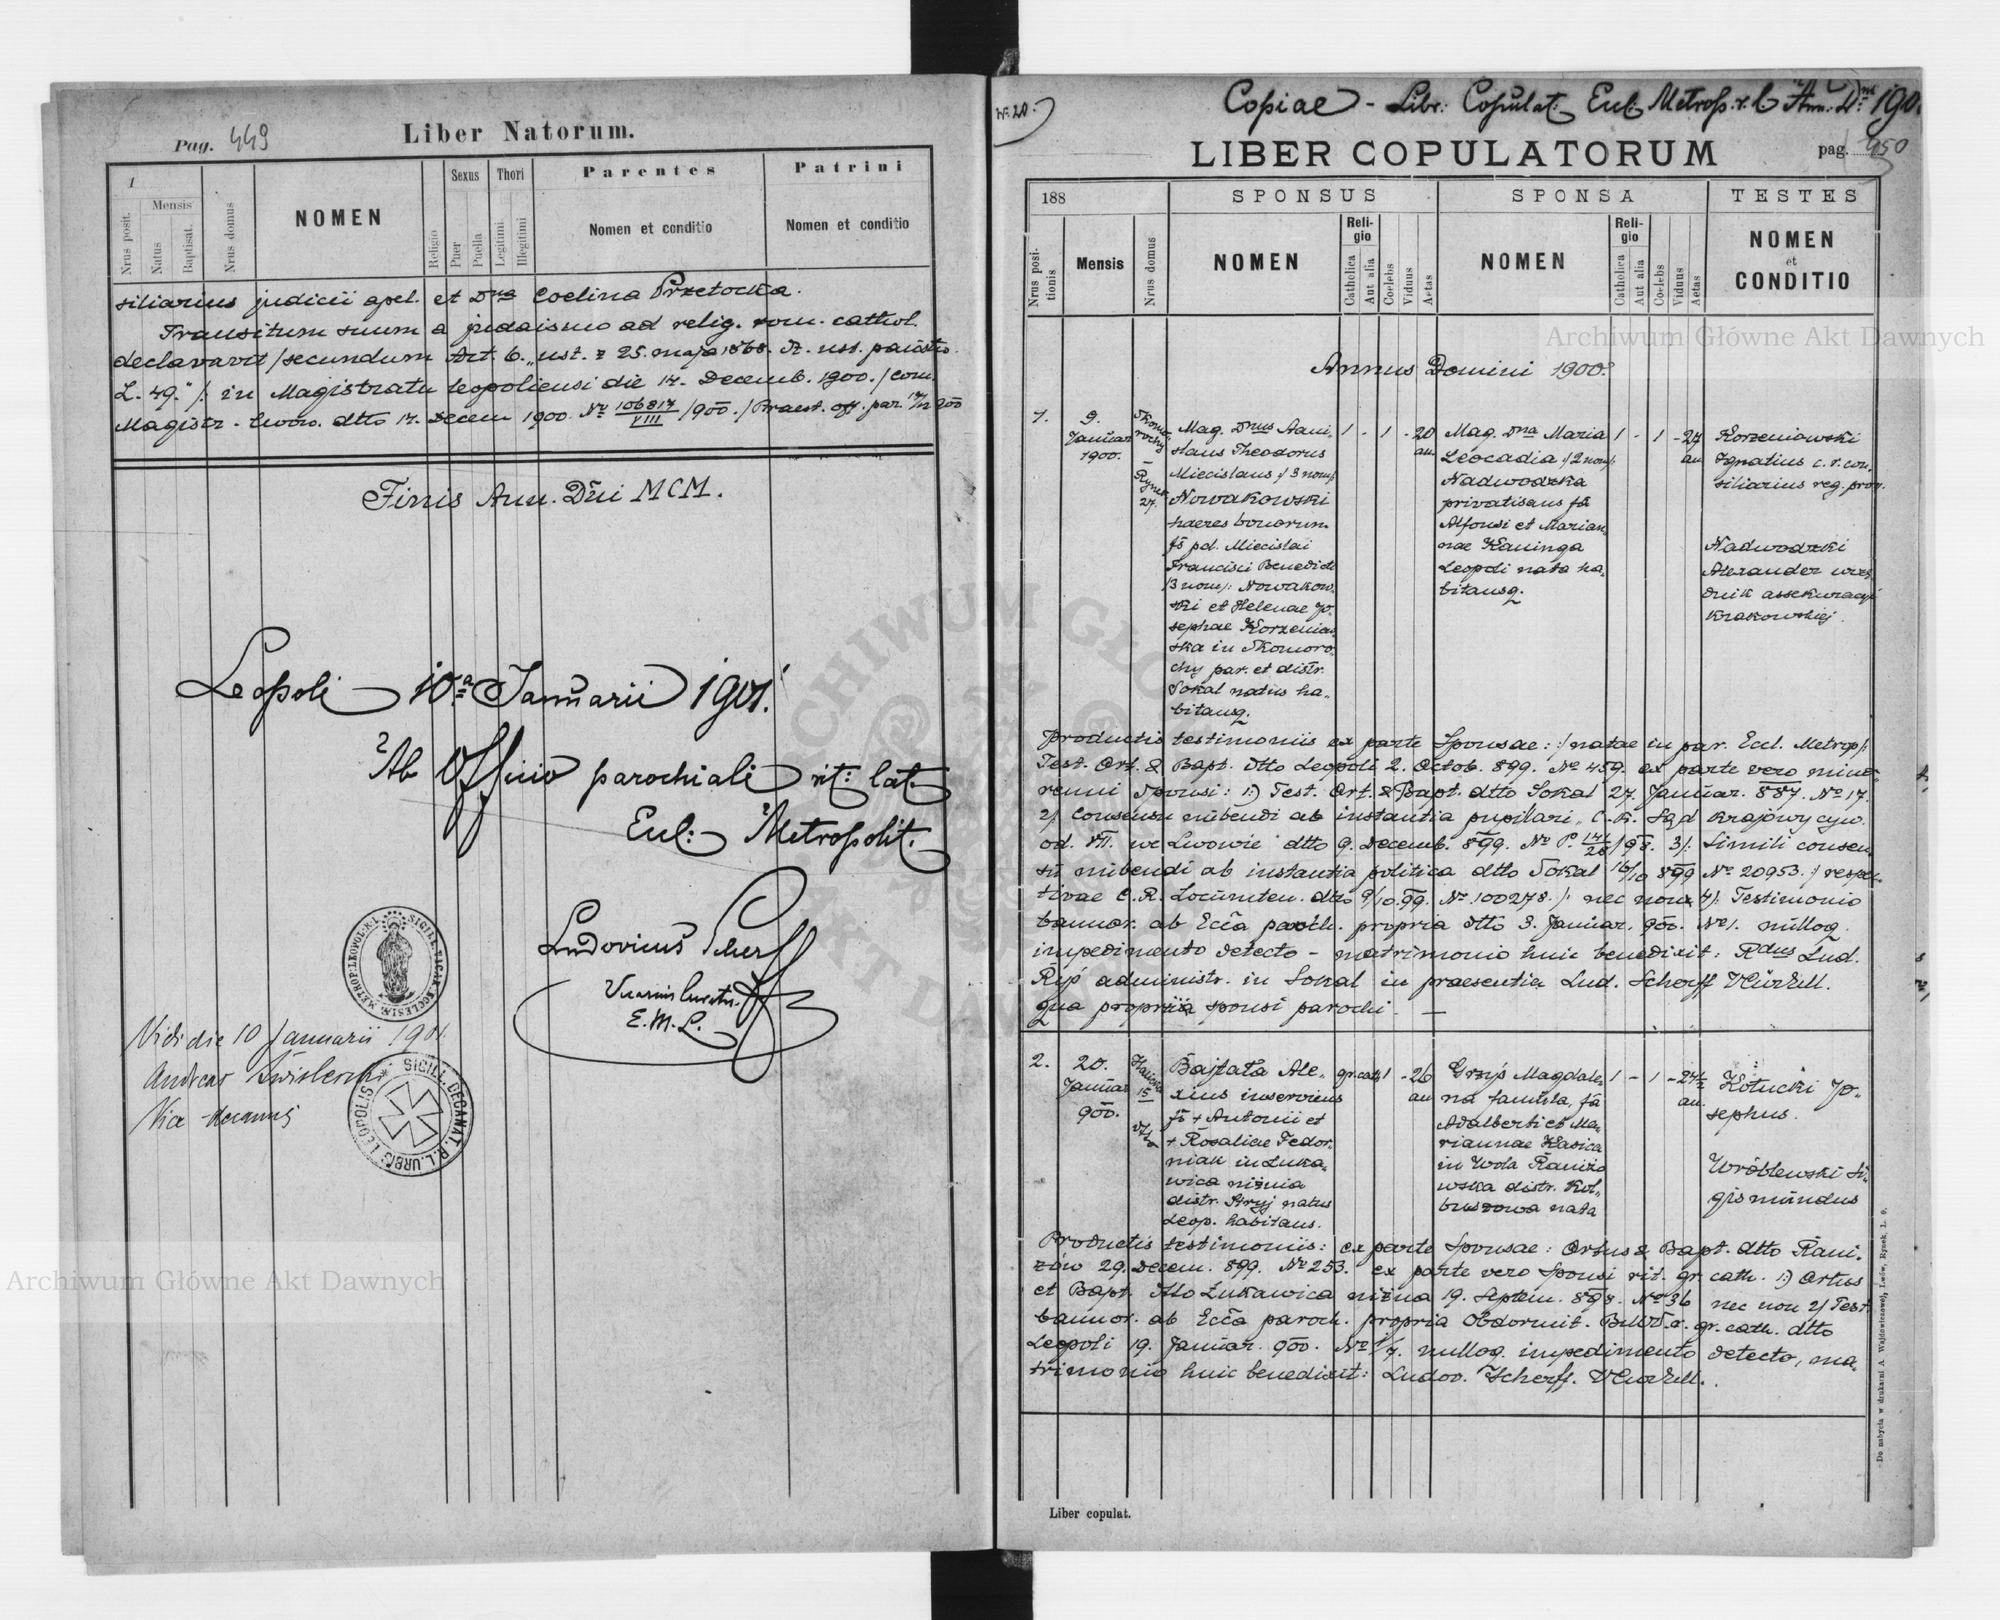 Pag. 449
Liber Natorum.
1
Mensis
Nrus posit.
Natus
Baptisat.
Nrus domus
NOMEN
Religio
Sexus
Puer
Puella
Thori
Legitimi
Illegitimi
Parentes
Nomen et conditio
Patrini
Nomen et conditio
siliarius judicii apel. et Dna Coelina Przetocka.
Transitum suum a judaismo ad relig. rom. cathol.
declaravit /secundum Art. 6. „ust. z 25. maja 1868. Dz. ust. państw.
L. 49." /: in Magistratu leopoliensi die 14. Decemb. 1900. / com.
Magistr. Lwow. dtto 17. Decem 1900. Nr 106817/VIII /900. / Praest. off. par. 17/12 900
Finis Ann. Dni MCM.
Leopoli 10a Januarii 1901.
Ab Officio parochiali rit: lat.
Eccl: Metropolit.
Ludovicus Scherff
Vicarius Curatus
E. M. L.
Vidi die 10 Januarii 1901.
Andreas
Vice-decanus
SIGILL. DECANAT. R. L. URBIS LEOPOLIS
Nr. 20.
Copiae - Libr: Copulat. Eccl: Metrop. r. l. Ann: Dni 190
LIBER COPULATORUM
pag. 450
188
SPONSUS
SPONSA
TESTES
Nrus positionis
Mensis
Nrus domus
NOMEN
Religio
Catholica
Aut alia
Coelebs
Viduus
Aetas
NOMEN
Religio
Catholica
Aut alia
Coelebs
Viduus
Aetas
NOMEN
et
CONDITIO
Annus Domini 1900.
1.
9.
Januar
1900.
Skomorochy
-
Rynek
27.
Mag. Dnus Stani-
slaus Theodorus
Miecislaus :/ 3 nom/:
Nowakowski
haeres bonorum
fs pd. Miecislai
Francisci Benedicti
/3 nom/: Nowakow-
ski et Helenae Jo-
sephae Korzeniow-
ska in Skomoro-
chy par. et distr.
Sokal natus ha-
bitansq.
1 - 1 - 20
an.
Mag. Dna Maria
Leocadia :/ 2 nom/:
Nadwodzka
privatisans fa
Alfonsi et Marian-
nae Kaninga
Leopoli nata ha-
bitansq.
1 - 1 - 27
an
Korzeniowski
Ignatius c. r. con-
siliarius reg. prov.
Nadwodzki
Alexander urzę-
dnik assekuracyi
Krakowskiej.
Productis testimoniis ex parte Sponsae: :/ natae in par. Eccl. Metrop/:
Test. Ort. & Bapt. dtto Leopoli 2. Octob. 899. No 459. ex parte vero mino-
renni Sponsi: 1:) Test. Ort. & Bapt. dtto Sokal 27. Januar. 887. No 17.
2/ Consensu nubendi ab instantia pupilari „ C. K. Sąd krajowy cyw.
od. VII. we Lwowie dtto 9. Decemb. 899. No P. 141/28 /98. 3/: Simili consen-
su nubendi ab instantia politica dtto Sokal 16/10 899 No 20953. :/ respec-
tivae C. R. Locumten. dtto 9/10 99. No 100278. /: nec non 4/: Testimonio
bannor. ab Ecca paroch. propria dtto 3. Januar. 900. No 1. nulloq.
impedimento detecto - matrimonio huic benedixit: Rdus Lud.
Ryś administr. in Sokal in praesentia Lud. Scherff VCur
qua proprii sponsi parochi. —
2.
20.
Januar
900.
15
Bajtała Ale-
xius inserviens
fs + Antonii et
+ Rosaliae Fedor-
niak in Luka-
wica niżnia
distr. Stryj natus
Leop. habitans.
gr. cath 1 - 26
an
Grzyś Magdale-
na famula, fa
Adalberti et Ma-
riannae Kasica
in Wola Raniżo-
wska distr. Kol-
buszowa nata
1 - 1 - 24½
an.
Kotucki Jo-
sephus.
Wróblewski Si-
gismundus
Productis testimoniis: ex parte Sponsae: Ortus & Bapt. dtto Rani-
żów 29. Decem. 899. No 253. ex parte vero Sponsi rit. gr. cath. 1:) Ortus
et Bapt. dtto Łukawica niżna 19. Septem. 898. No 36 nec non 2/ Test.
bannor. ab Ecca paroch. propria Obdormit. B.M.V. r. gr. cath. dtto
Leopoli 19. Januar. 900. No 7. nulloq. impedimento detecto, ma-
trimonio huic benedixit: Ludov. Scherff. VCur
Liber copulat.
Do nabycia w drukarni A. Wajdowiczowej, Lwów, Rynek, L. 9.
Archiwum Główne Akt Dawnych
Archiwum Główne Akt Dawnych
ARCHIWUM GŁÓWNE AKT DAWNYCH